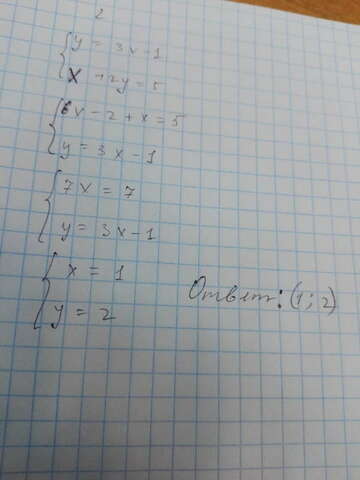 2
{ y = 3x - 1
x + 2y = 5
{ 6x - 2 + x = 5
y = 3x - 1
{ 7x = 7
y = 3x - 1
{ x = 1
y = 2
Ответ: (1; 2)